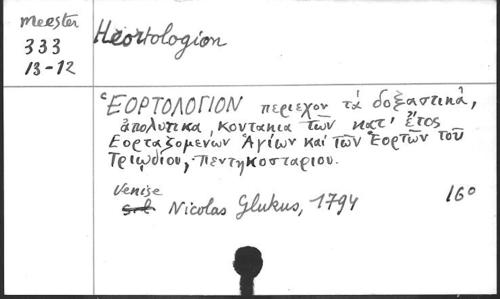 Meester
333
13-12
Heortologion
ἙΟΡΤΟΛΟΓΙΟΝ περιεχον τά δοξαστικά,
ἀπολυτικα, κοντακια τῶν κατ' ἔτος
Εορταζομενων Ἁγίων καί τῶν Ἑορτῶν τοῦ
Τριῳδίου, Πεντηκοσταριου.
Venise
s.l. Nicolas Glukus, 1794 16º